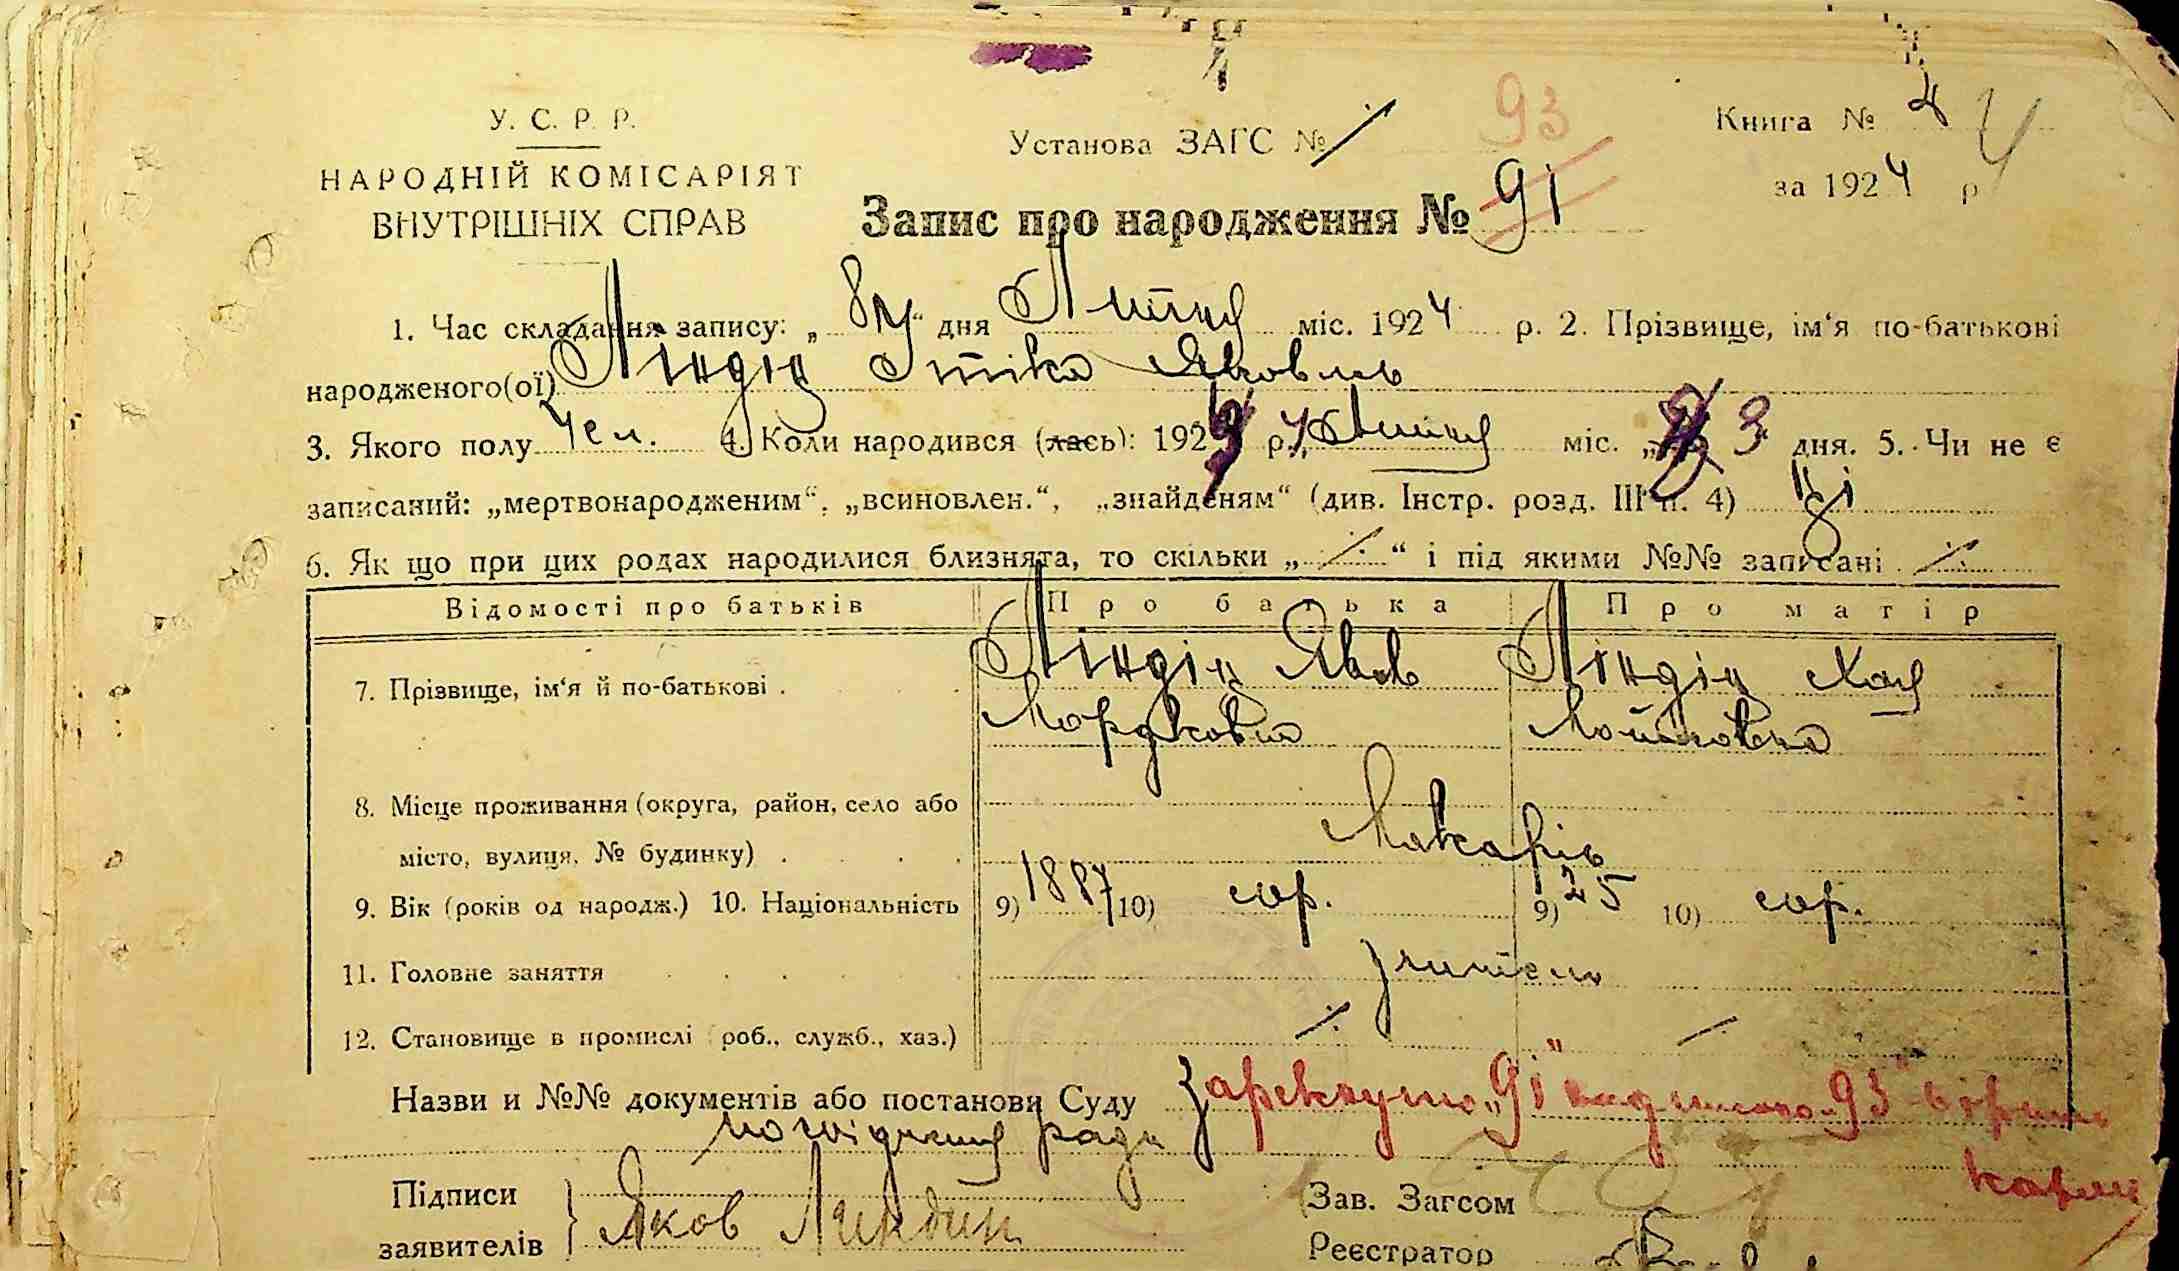 У. С. Р. Р.
НАРОДНІЙ КОМІСАРІЯТ
ВНУТРІШНІХ СПРАВ
Установа ЗАГС №
93
Книга № 4 4
за 1924 р
Запис про народження № 91
1. Час складання запису: „8го“ дня Лютий міс. 1924 р. 2. Прізвище, ім‘я по-батькові
народженого(ої) Ліндін Яковль
3. Якого полу Чел. 4. Коли народився (лась): 192 р., Лютий міс. „ 3 дня. 5. Чи не є
записаний: „мертвонародженим“, „всиновлен.“, „знайденям“ (див. Інстр. розд. III п. 4) Ні
6. Як що при цих родах народилися близнята, то скільки „ ⁒ “ і під якими №№ записані ⁒
Відомості про батьків Про батька Про матір
7. Прізвище, ім‘я й по-батькові . Ліндін Яков Ліндін Хая
Мордкович
8. Місце проживання (округа, район, село або
місто, вулиця, № будинку) . Макарів
9. Вік (років од народж.) 10. Національність 9) 1887 10) євр. 9) 25 10) євр.
11. Головне заняття учитель
12. Становище в промислі (роб., служб., хаз.) ⁒
Назви и №№ документів або постанови Суду Зареkнуто „91“ надписано „93“ вірити
ради
карлі
Підписи
заявителів
Яков Линдин
Зав. Загсом
Реєстратор